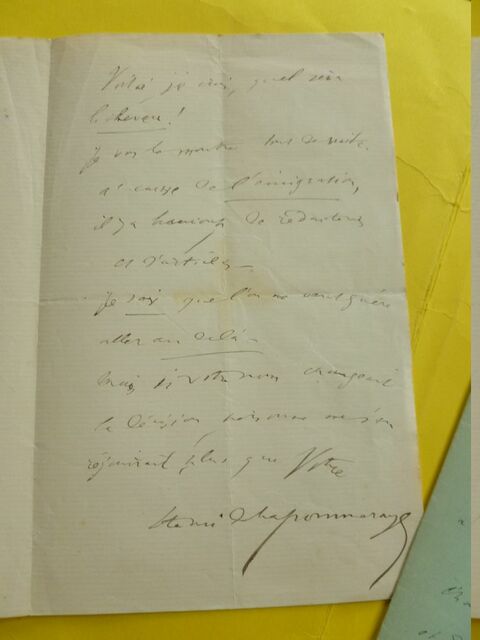 Voilà je crois, quel sera
le cheveu !
Je vous le montre tout de suite.
à cause de l'émigration,
il y a beaucoup de rédacteurs
et d'articles —
Je sais que l'on ne veut guère
aller au delà —
Mais si votre nom changeait
la décision, personne ne s'en
réjouirait plus que Votre
Henri de Lapommeraye